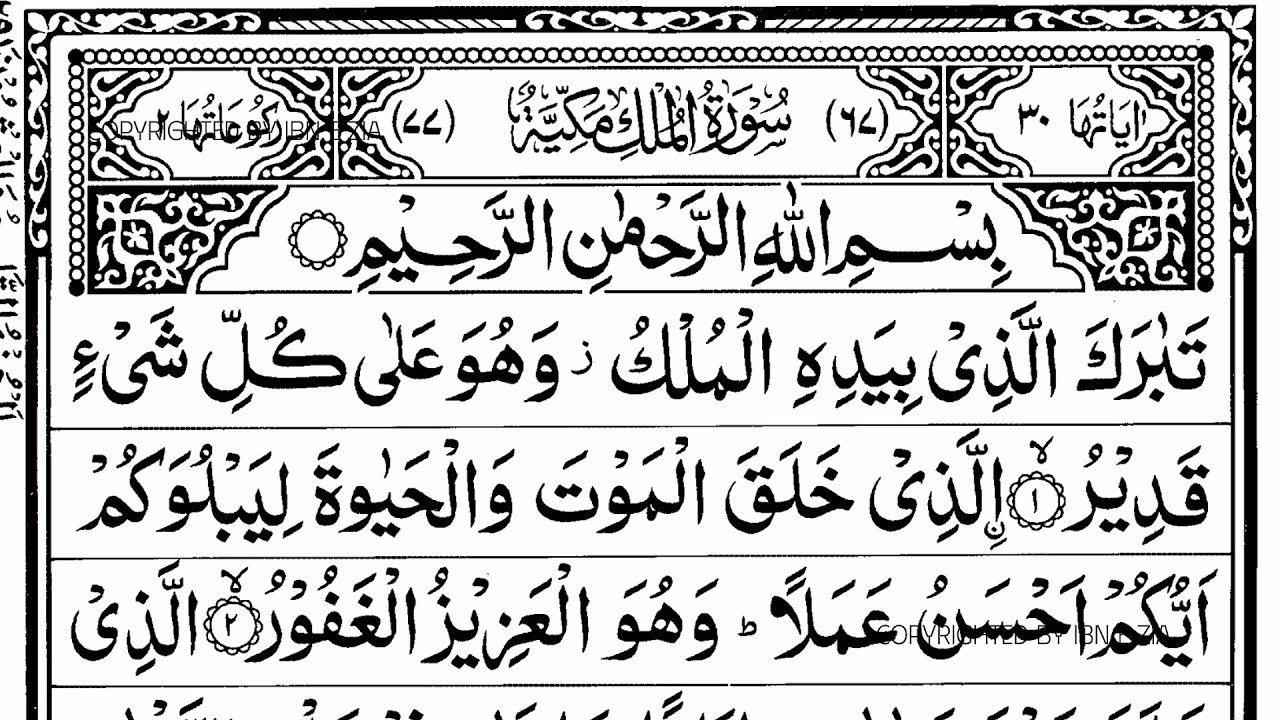 اٰيَاتُهَا ٣٠ (٦٧) سُوْرَةُ الْمُلْكِ مَكِّيَّةٌ (٧٧) رُكُوْعَاتُهَا ٢
COPYRIGHTED BY IBN E ZIA
بِسْمِ اللّٰهِ الرَّحْمٰنِ الرَّحِيْمِ
تَبٰرَكَ الَّذِىْ بِيَدِهِ الْمُلْكُ ز وَهُوَ عَلٰى كُلِّ شَىْءٍ
قَدِيْرُ ۙ﴿١﴾ ۨالَّذِىْ خَلَقَ الْمَوْتَ وَالْحَيٰوةَ لِيَبْلُوَكُمْ
اَيُّكُمْ اَحْسَنُ عَمَلًا ؕ وَهُوَ الْعَزِيْزُ الْغَفُوْرُ ۙ﴿٢﴾ الَّذِىْ
COPYRIGHTED BY IBN E ZIA